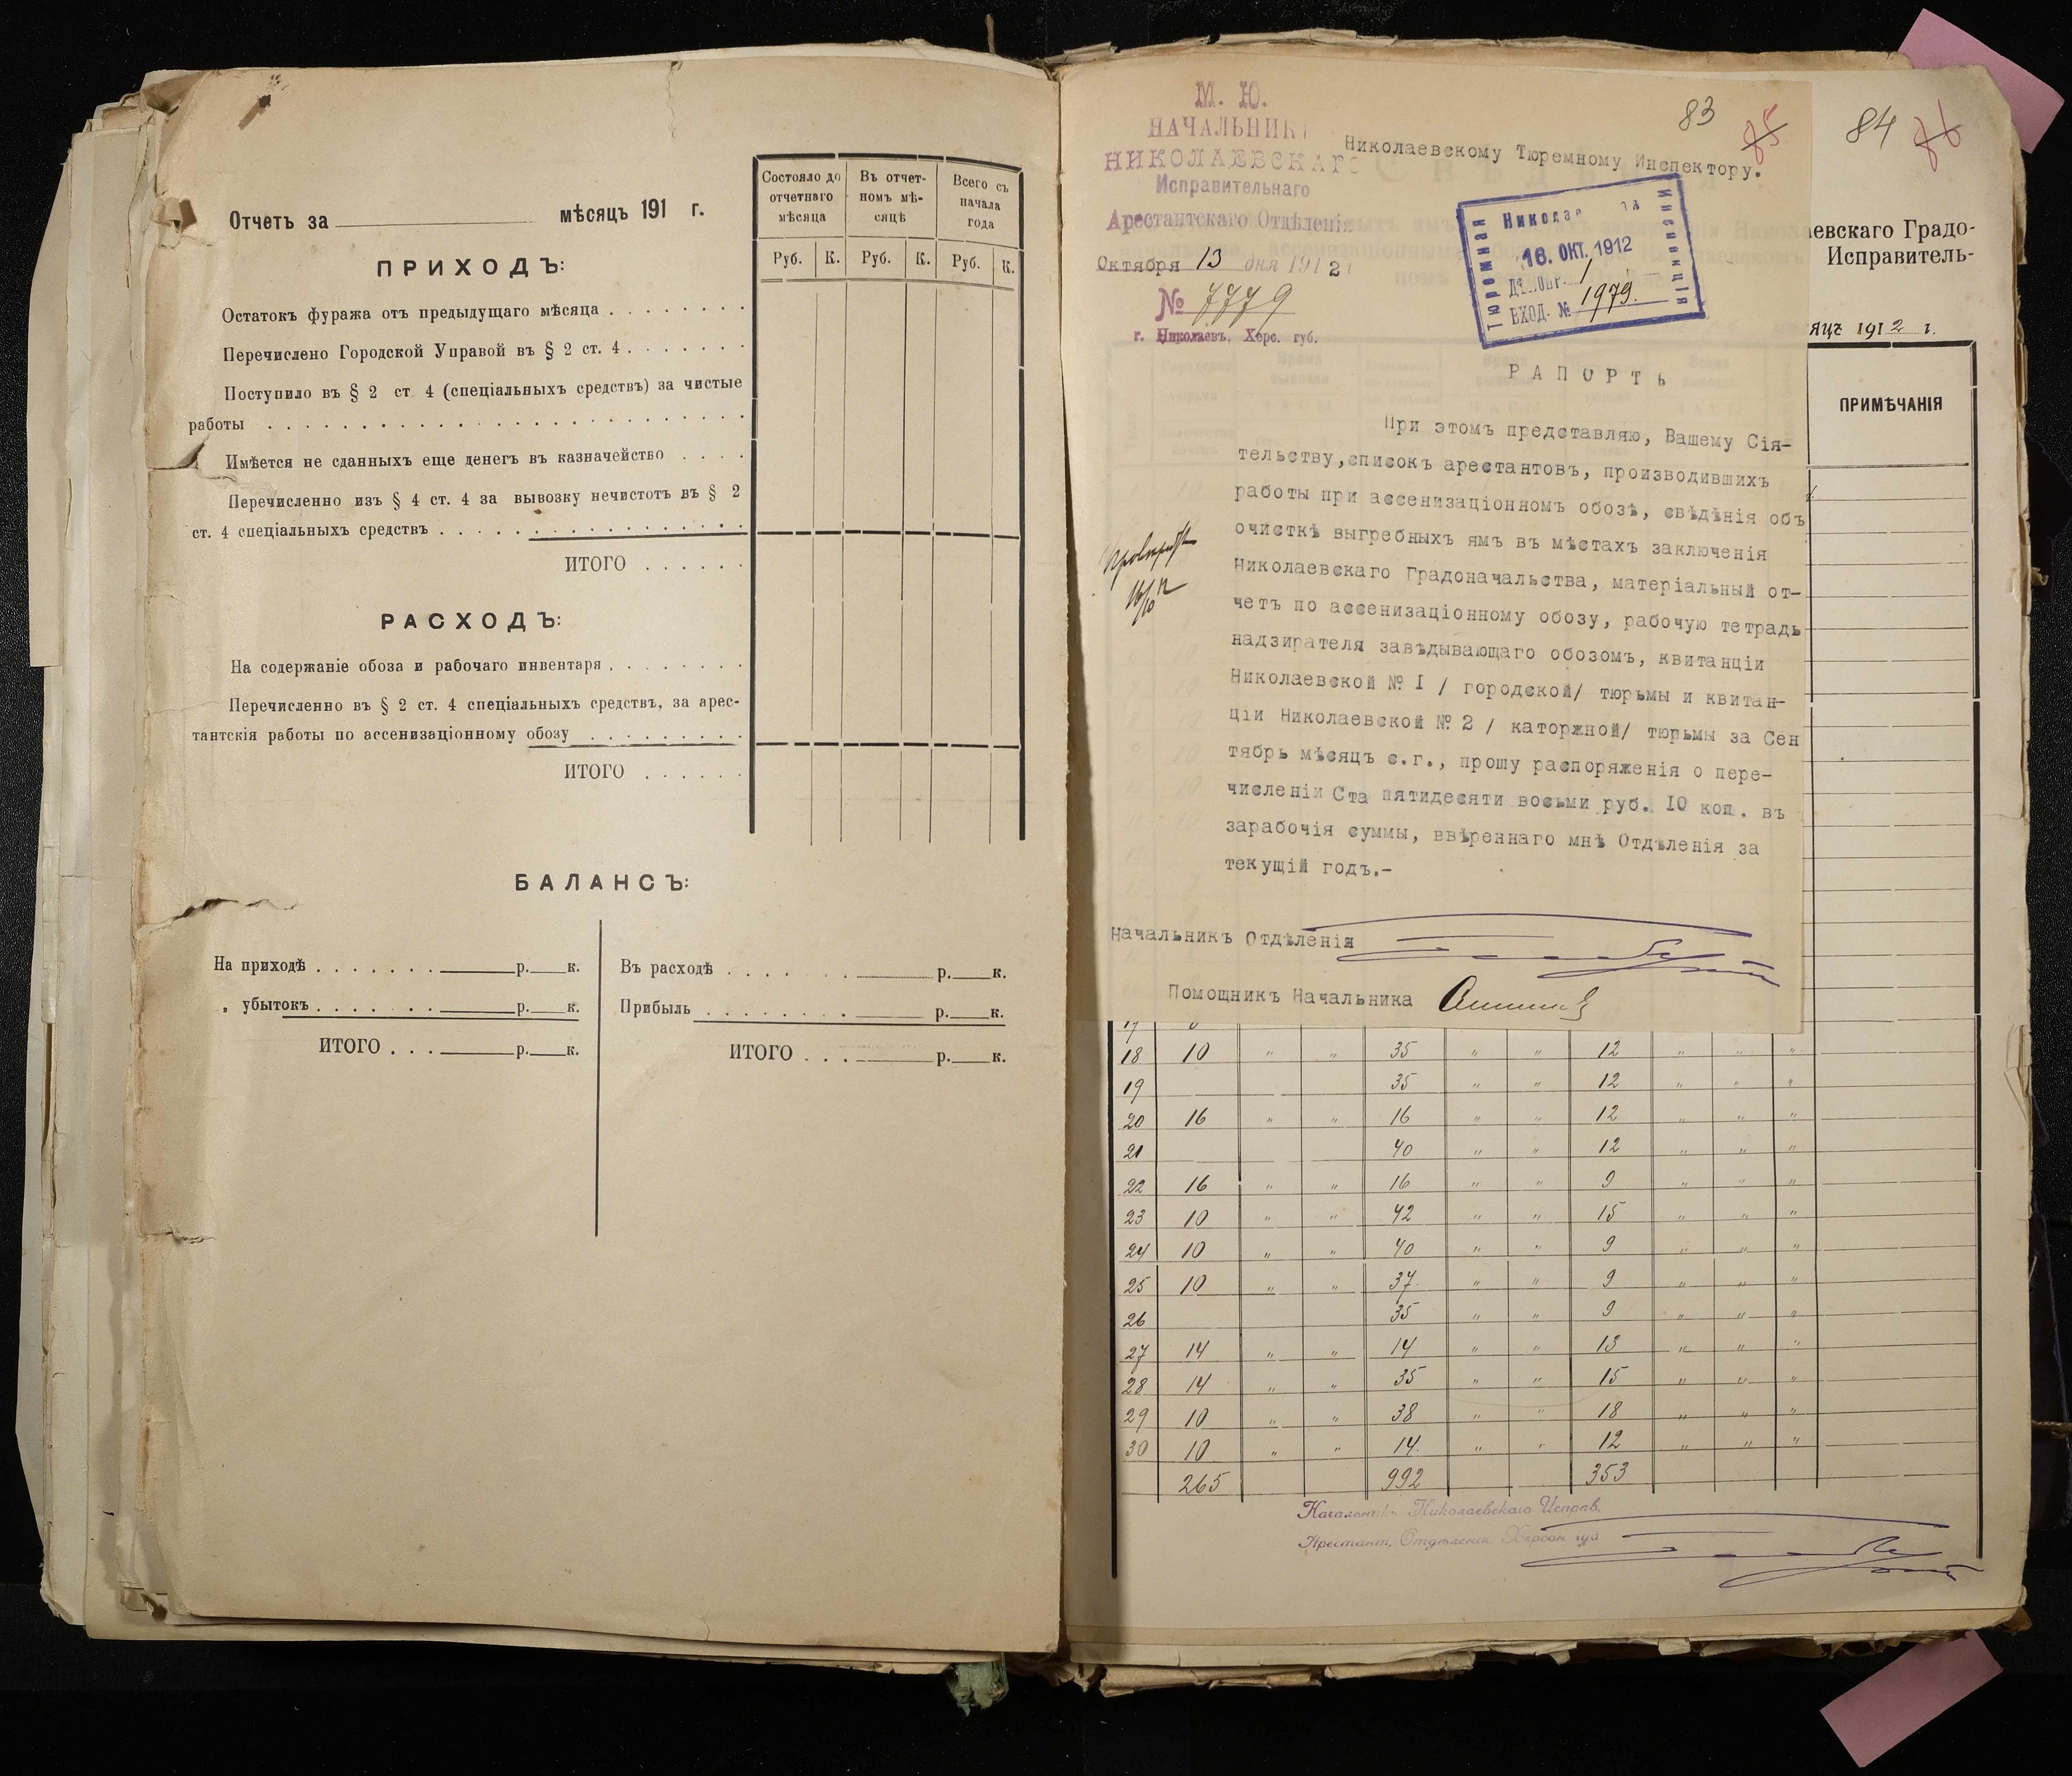 Отчетъ за мѣсяцъ 191 г.
Состояло до отчетнаго мѣсяца
Въ отчет-номъ мѣ-сяцѣ
Всего съ начала года
Руб. К. Руб. К. Руб. К.
ПРИХОДЪ:
Остатокъ фуража отъ предыдущаго мѣсяца
Перечислено Городской Управой въ § 2 ст. 4
Поступило въ § 2 ст 4 (спеціальныхъ средствъ) за чистые
работы
Имѣется не сданныхъ еще денегъ въ казначейство
Перечисленно изъ § 4 ст. 4 за вывозку нечистотъ въ § 2
ст. 4 спеціальныхъ средствъ
ИТОГО
РАСХОДЪ:
На содержаніе обоза и рабочаго инвентаря
Перечисленно въ § 2 ст. 4 спеціальныхъ средствъ, за арес-
тантскія работы по ассенизаціонному обозу
ИТОГО
БАЛАНСЪ:
На приходѣ р. к. Въ расходѣ р. к.
„ убытокъ р. к. Прибыль р. к.
ИТОГО р. к. ИТОГО р. к.
М. Ю.
НАЧАЛЬНИКЪ
НИКОЛАЕВСКАГО
Исправительнаго
Арестантскаго Отдѣленія
Октября 13 дня 1912
№ 7779
г. Николаевъ. Херс. губ.
83 85
84 86
Николаевскому Тюремному Инспектору.
Тюремная
Инспекція
16. ОКТ. 1912
ВХОД. № 1979.
РАПОРТЪ
При этомъ представляю, Вашему Сія-
тельству,списокъ арестантовъ, производившихъ
работы при ассенизаціонномъ обозѣ, свѣдѣнія объ
очисткѣ выгребныхъ ямъ въ мѣстахъ заключенія
Николаевскаго Градоначальства, матеріальный от-
четъ по ассенизаціонному обозу, рабочую тетрадь
надзирателя завѣдывающаго обозомъ, квитанціи
Николаевской № I / городской/ тюрьмы и квитан-
ціи Николаевской № 2 / каторжной/ тюрьмы за Сен
тябрь мѣсяцъ с.г., прошу распоряженія о пере-
численіи Ста пятидесяти восьми руб. IO коп. въ
зарабочія суммы, ввѣреннаго мнѣ Отдѣленія за
текущій годъ.-
Начальникъ Отдѣленія
Помощникъ Начальника
16/10 12
аевскаго Градо-
Исправитель-
яцъ 1912 г.
ПРИМѢЧАНІЯ
18 10 " " 35 " " 12 " " "
19 35 " " 12 " " "
20 16 " " 16 " " 12 " " "
21 40 " " 12 " " "
22 16 " " 16 " " 9 " " "
23 10 " " 42 " " 15 " " "
24 10 " " 40 " " 9 " " "
25 10 " " 37 " " 9 " " "
26 35 " " 9 " " "
27 14 " " 14 " " 13 " " "
28 14 " " 35 " " 15 " " "
29 10 " " 38 " " 18 " " "
30 10 " " 14 " " 12 " " "
265 992 353
Начальникъ Николаевскаго Исправ.
Арестант. Отдѣленія Херсон губ